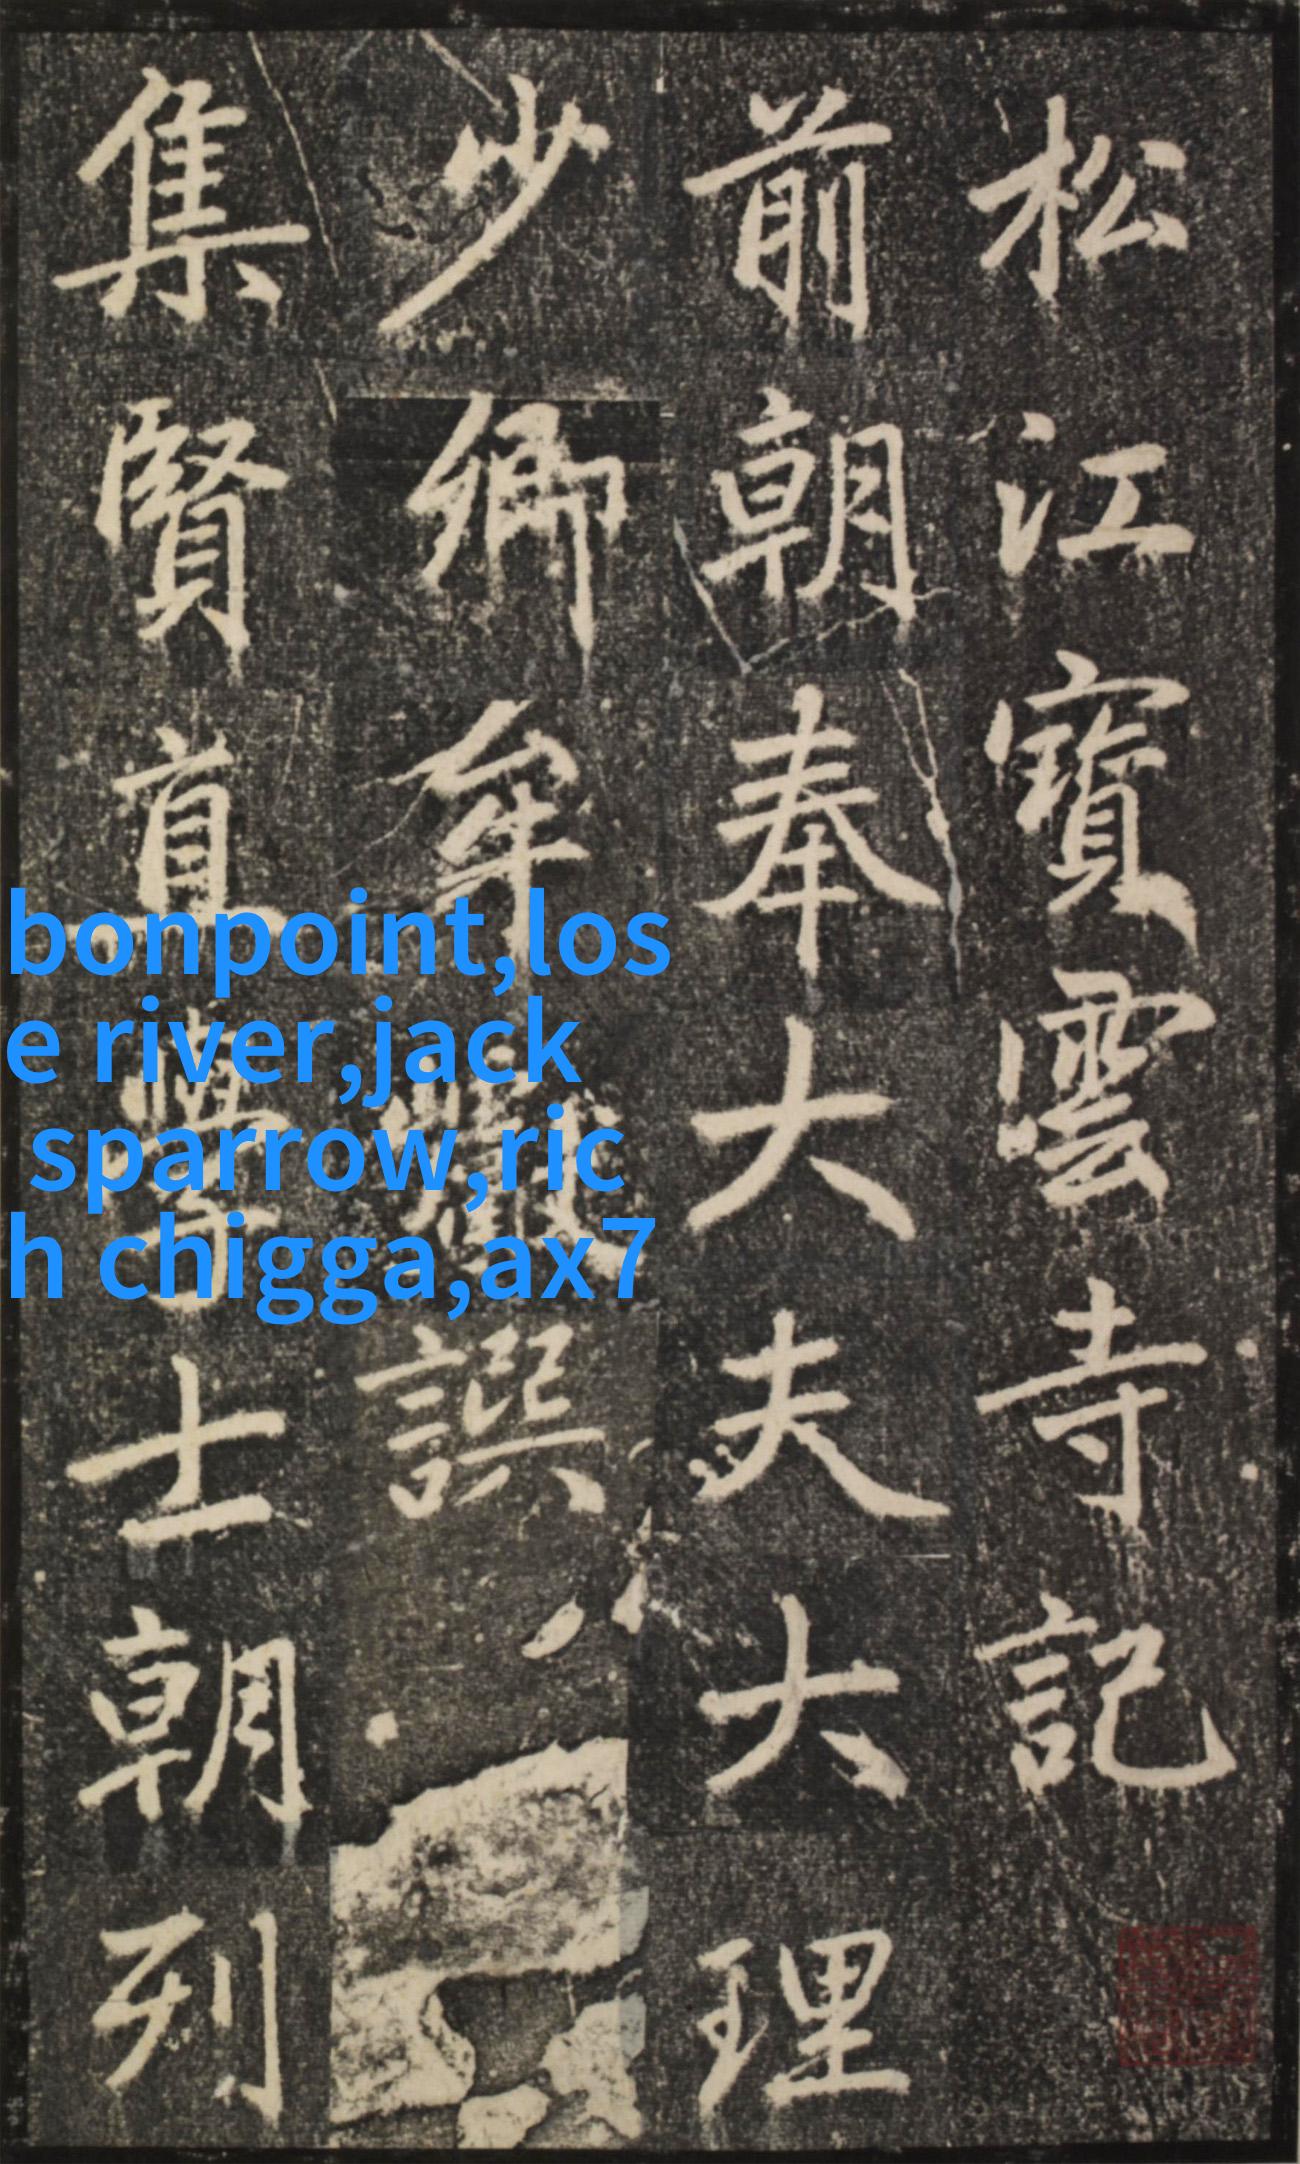 松江寶雲寺記
前朝奉大夫大理
少卿牟巘譔
集賢直學士朝列
bonpoint,los
e river,jack
sparrow,ric
h chigga,ax7